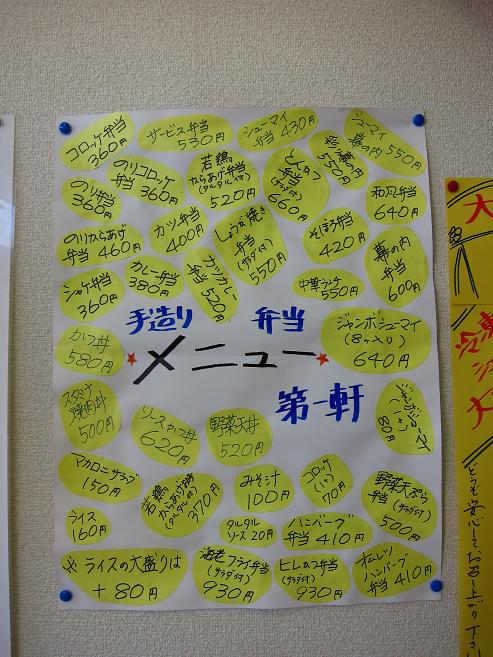 コロッケ弁当
360円
サービス弁当
530円
シューマイ
弁当 430円
シューマイ
幕の内 550円
のりコロッケ
弁当 360円
若鶏
からあげ弁当
(タルタル付)
520円
とんかつ
弁当
(サラダ付)
660円
550円
のり弁当
360円
和風弁当
640円
カツ弁当
400円
しょうが焼き
弁当
(サラダ付)
550円
そぼろ弁当
420円
のりからあげ
弁当 460円
幕の内
弁当
600円
シャケ弁当
360円
カレー弁当
380円
カツカレー
弁当
520円
中華ランチ
550円
手造り 弁当
メニュー
第一軒
カツ丼
580円
ジャンボシューマイ
(8ヶ入り)
640円
スタミナ
焼肉丼
500円
ソースかつ丼
620円
野菜天丼
520円
ジャンボシューマイ
(一ヶ)
80円
マカロニサラダ
150円
若鶏
からあげ
(タルタル付)
370円
みそ汁
100円
コロッケ
(1ヶ)
70円
野菜天ぷら
弁当(サラダ付)
500円
ライス
160円
タルタル
ソース 20円
ハンバーグ
弁当 410円
ライスの大盛りは
+80円
海老フライ弁当
(サラダ付)
930円
ヒレかつ弁当
(サラダ付)
930円
オムレツ
ハンバーグ
弁当 410円
大
冷凍
どうぞ安心してお召し上がり下さい